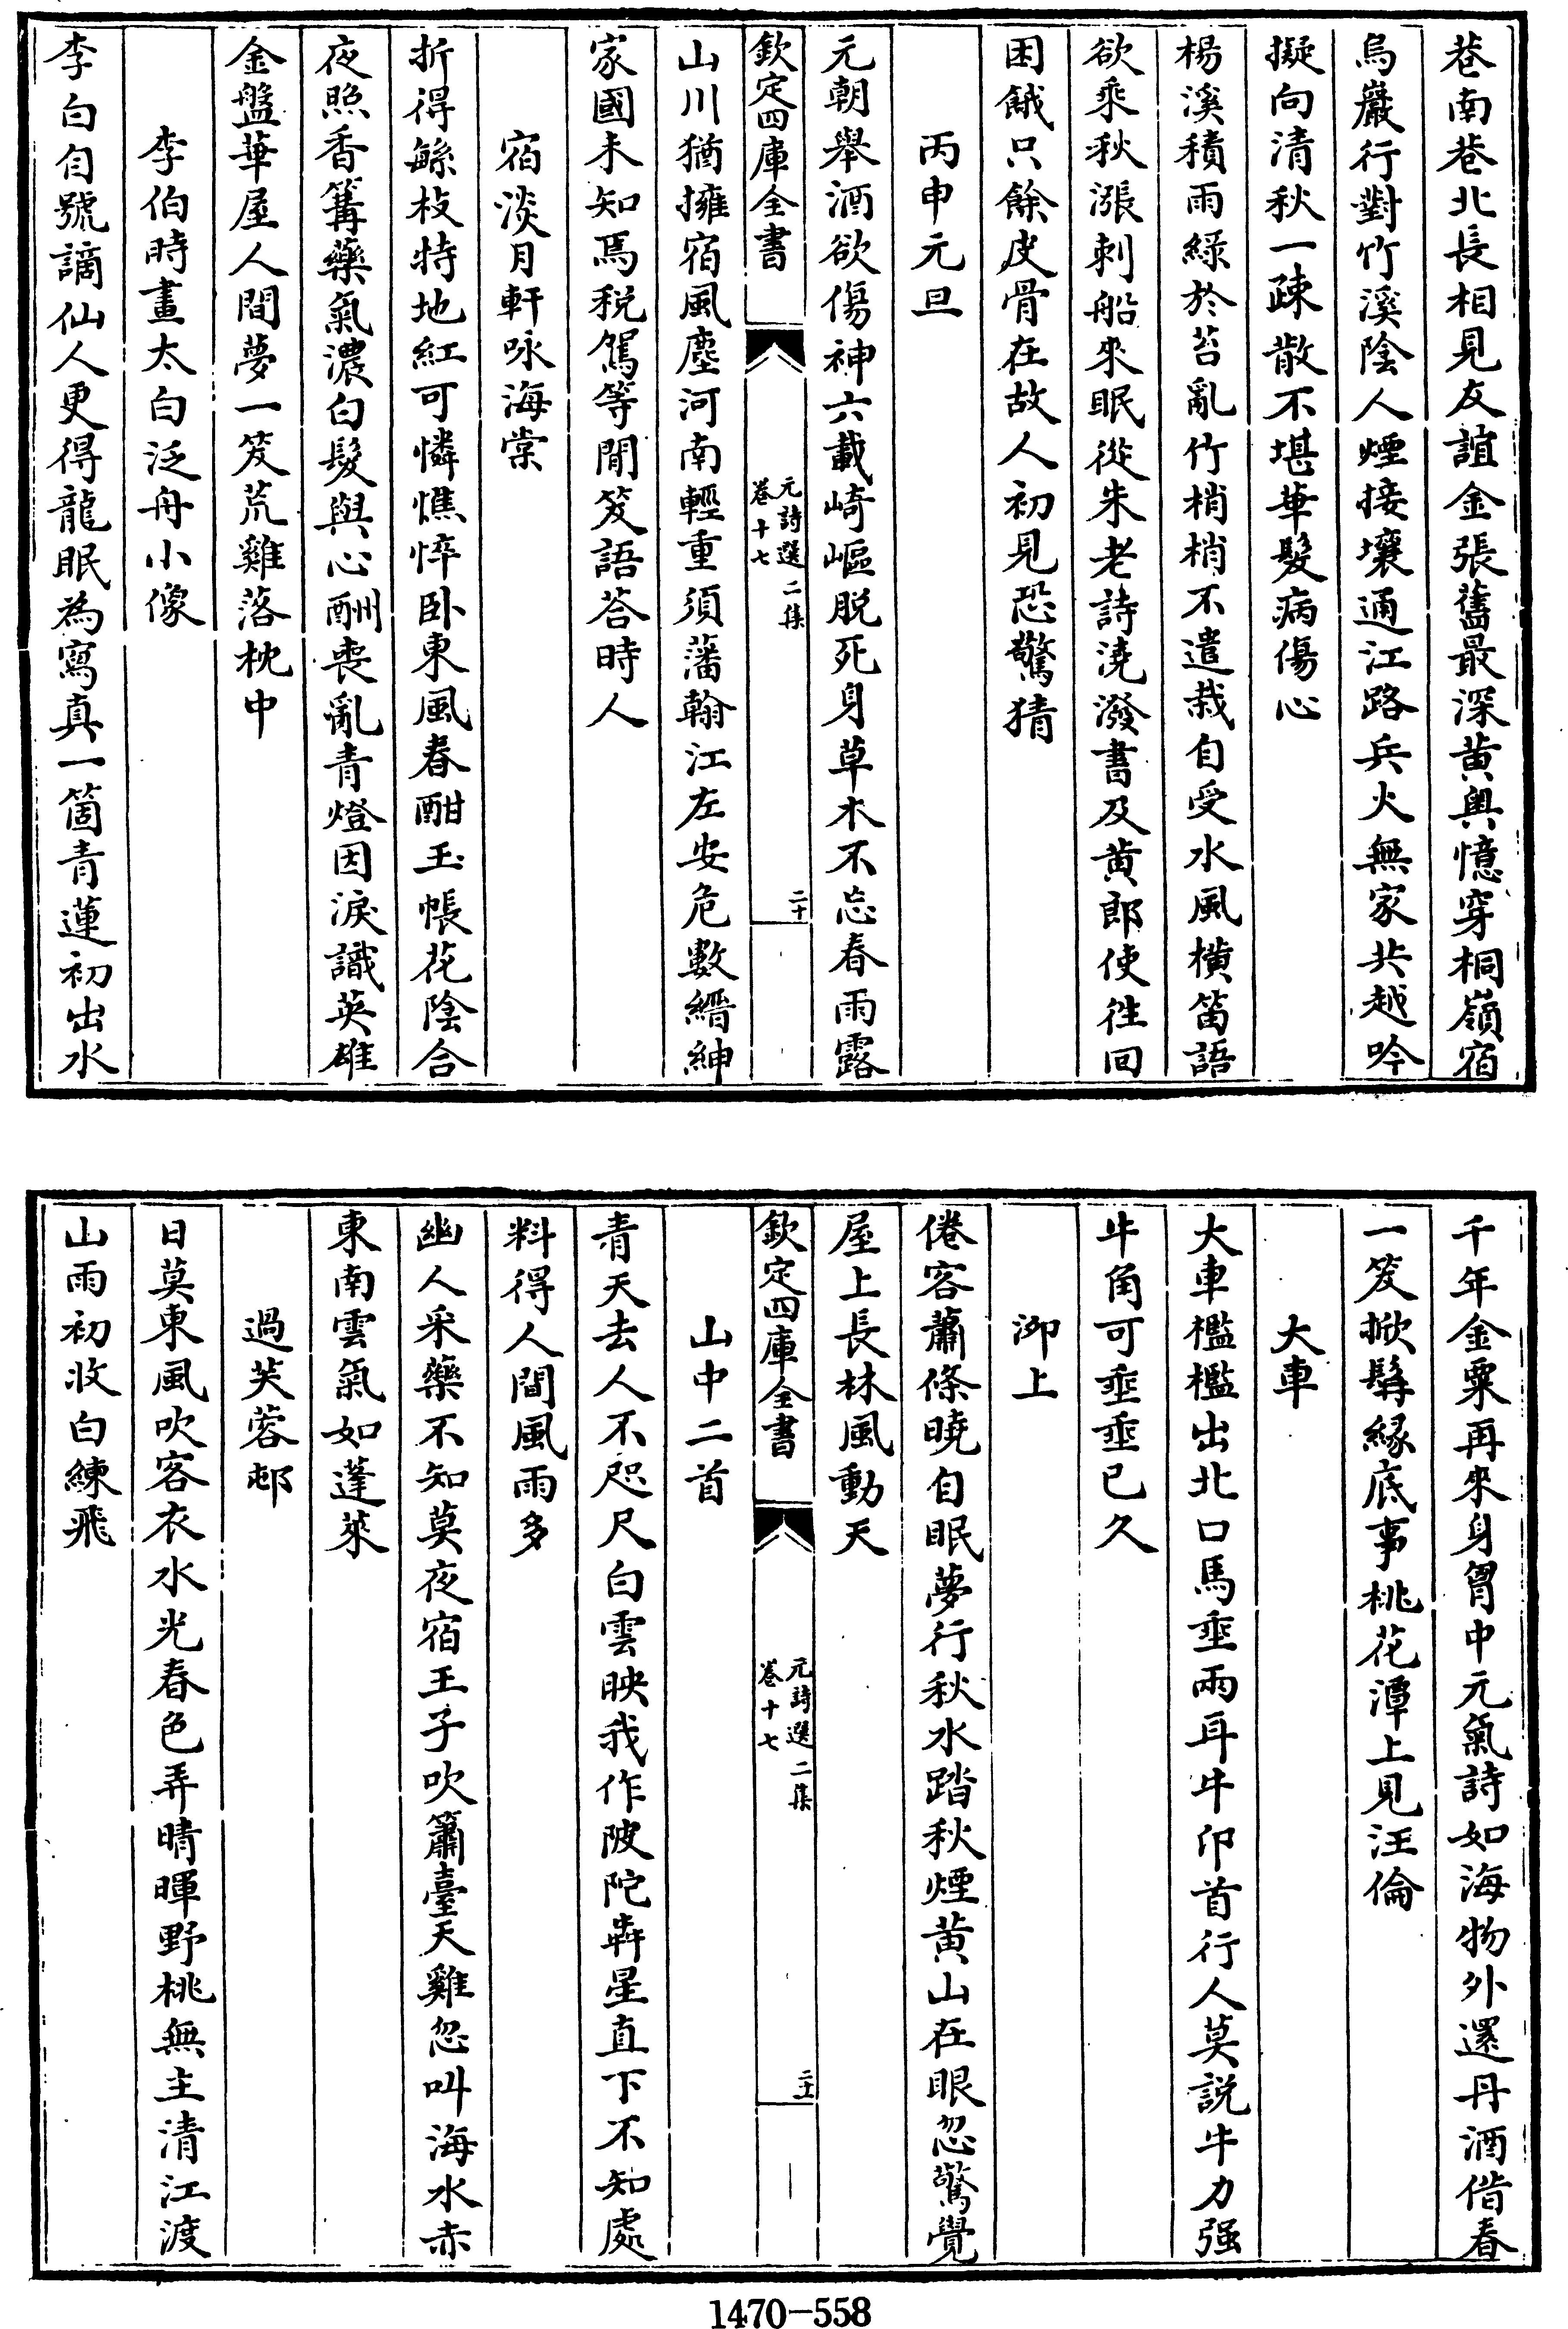 巷南巷北長相見友誼金張舊最深黄輿憶穿桐嶺宿
烏巖行對竹溪隂人煙接壤通江路兵火無家共越吟
擬向清秋一疎散不堪華髮病傷心
楊溪積雨綠於苔亂竹梢梢不遣栽自受水風橫笛語
欲乘秋漲刺船來眠從朱老詩澆潑書及黄郎使徃回
困餓只餘皮骨在故人初見恐驚猜
丙申元旦
元朝舉酒欲傷神六載崎嶇脱死身草木不忘春雨露
欽定四庫全書
元詩選二集
卷十七
二十
山川猶擁宿風塵河南輕重須藩翰江左安危數縉紳
家國未知焉税駕等閒笑語荅時人
宿淡月軒咏海棠
折得鮌枝特地紅可憐憔悴卧東風春酣玉帳花陰合
夜照香篝藥氣濃白髮與心酬喪亂青燈因淚識英雄
金盤華屋人間夢一笑荒雞落枕中
李伯時畫太白泛舟小像
李白自號謫仙人更得龍眠為寫真一箇青蓮初出水
千年金粟再來身胷中元氣詩如海物外還丹酒偕春
一笑掀髯緣底事桃花潭上見汪倫
大車
大車檻檻出北口馬垂兩耳牛卬首行人莫説牛力强
牛角可垂垂已久
泖上
倦客蕭條曉自眠夢行秋水踏秋煙黄山在眼忽驚覺
屋上長林風動天
欽定四庫全書
元詩選二集
卷十七
二十一
山中二首
青天去人不咫尺白雲映我作陂陀犇星直下不知處
料得人間風雨多
幽人采藥不知莫夜宿王子吹簫臺天雞忽叫海水赤
東南雲氣如蓬萊
過芙蓉邨
日莫東風吹客衣水光春色弄晴暉野桃無主清江渡
山雨初收白練飛
1470-558